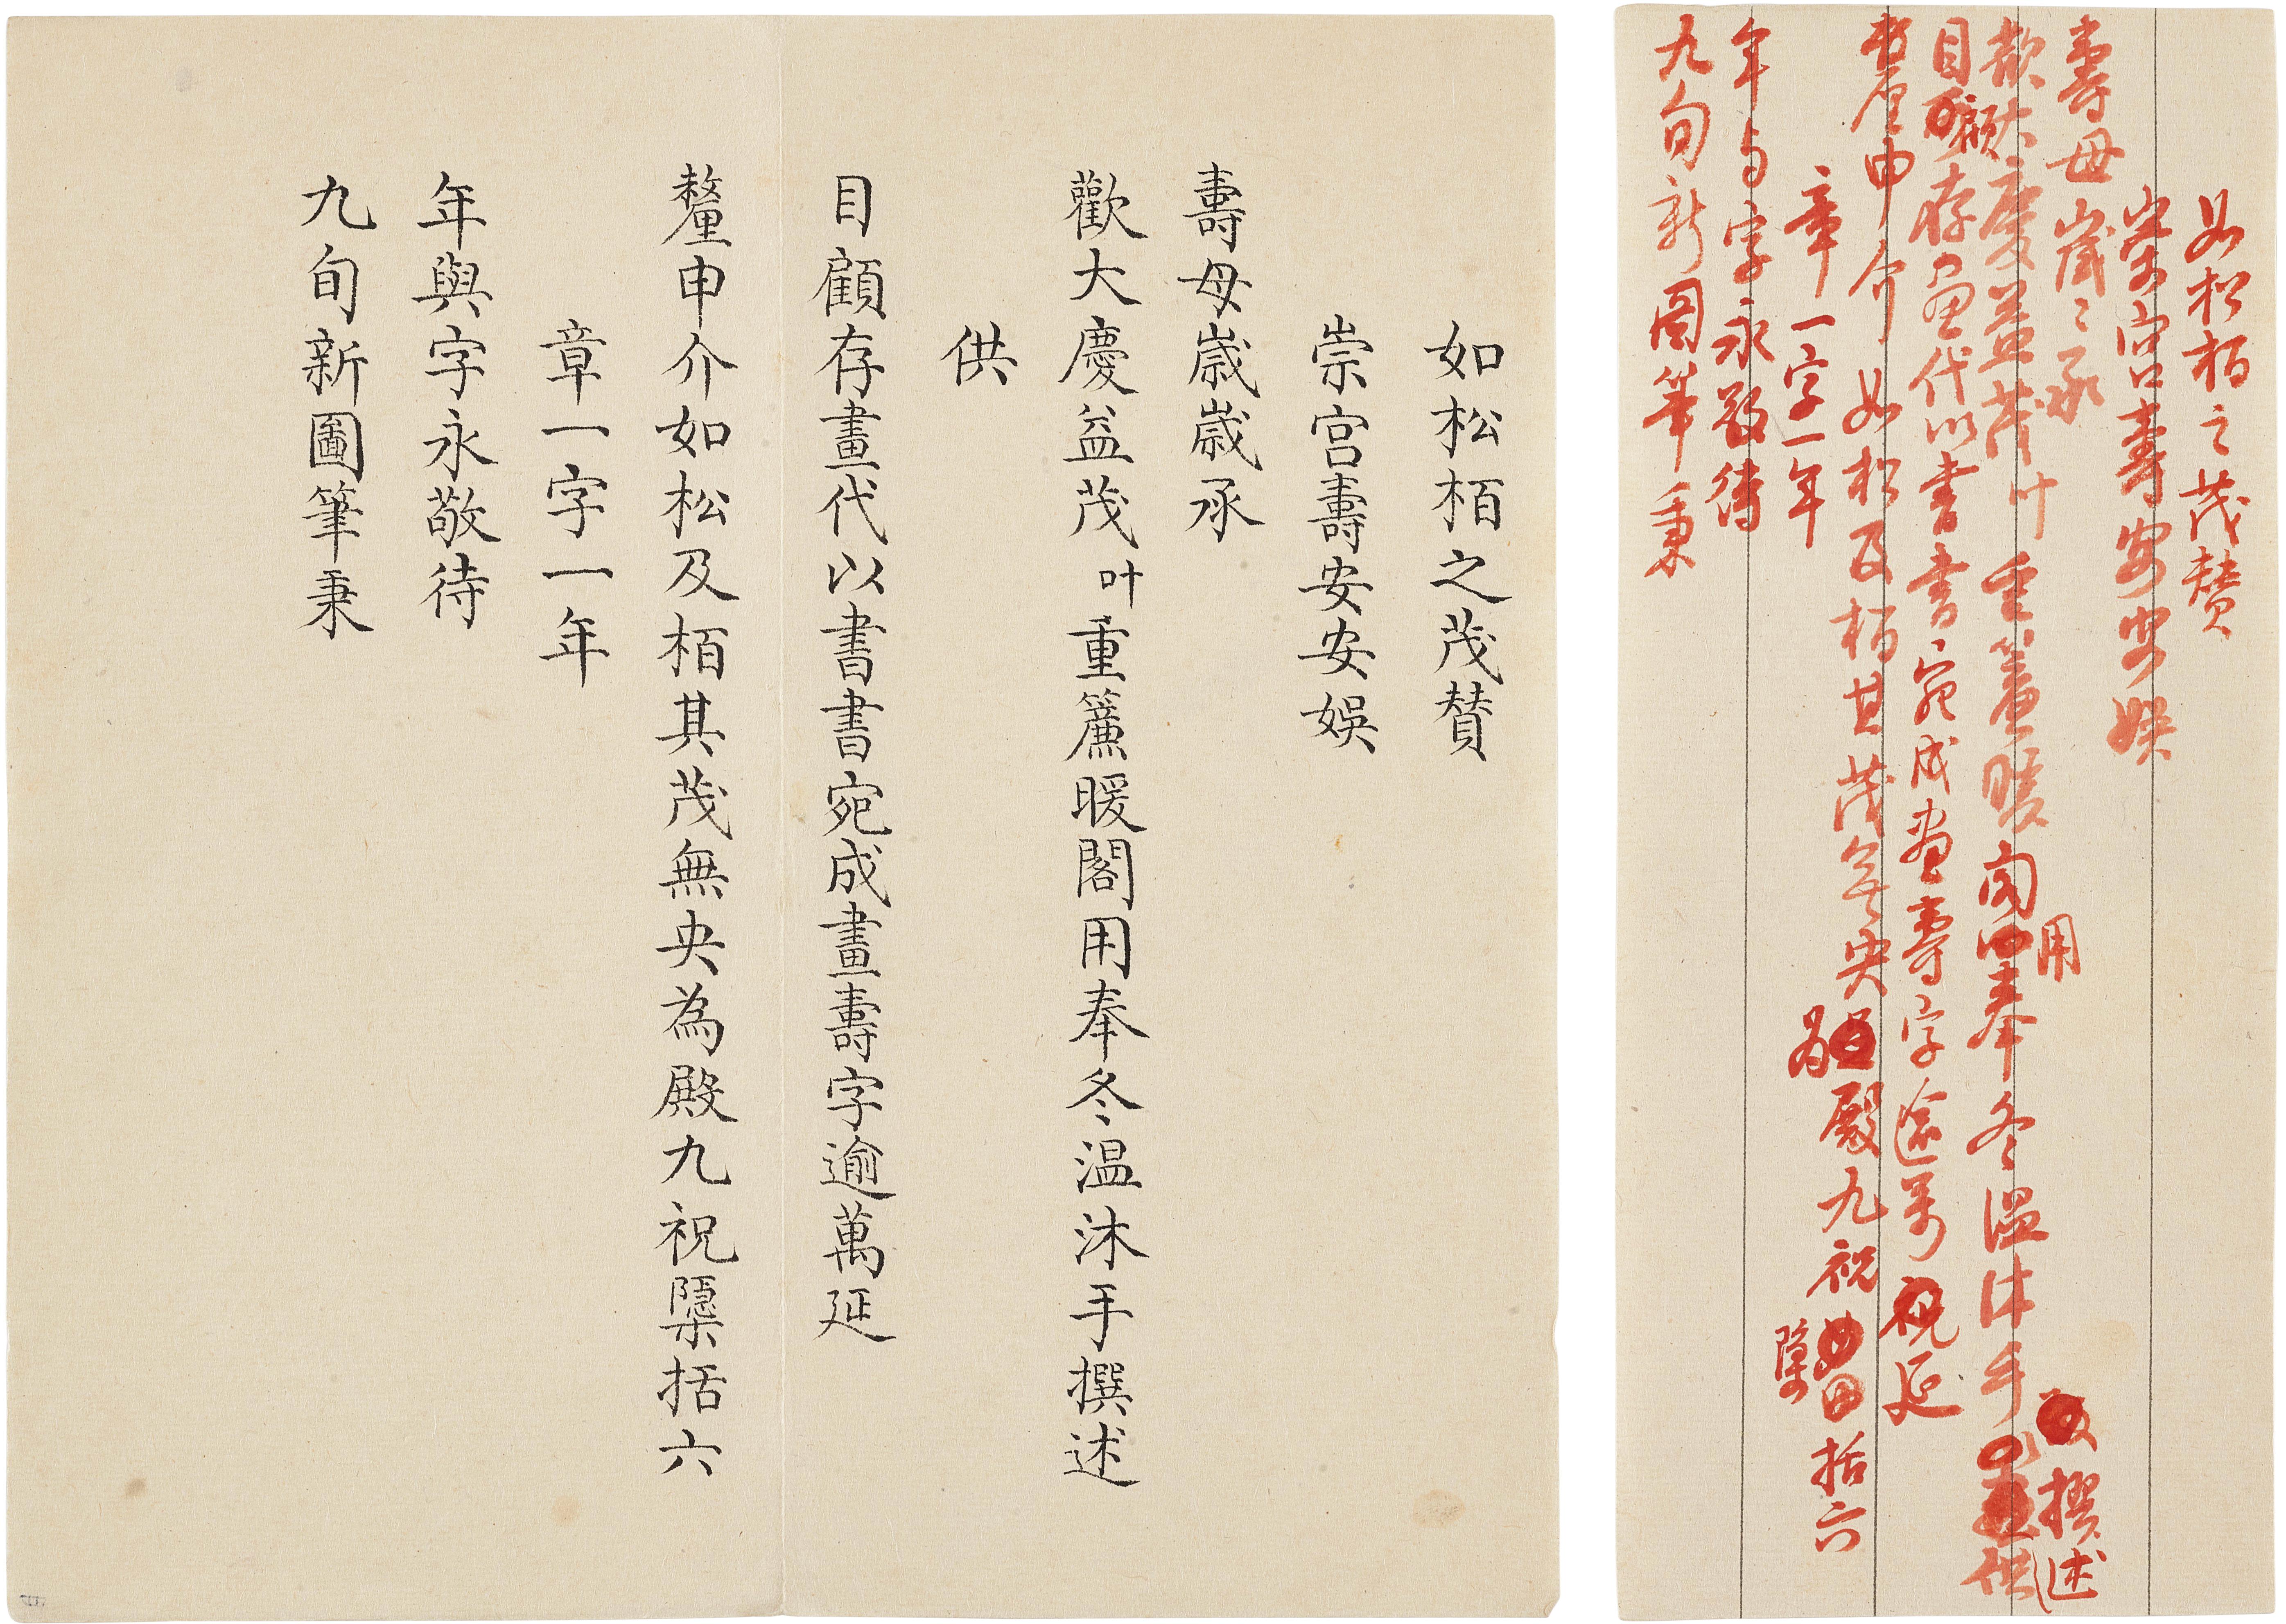 如松栢之茂贊
崇宫壽安安娛
壽母歲〻承
歡大慶益茂叶重簾暖閣用奉冬温沐手撰述供
目顧存畫代以書書宛成畫壽字逾萬延
釐申介如松及栢其茂無央為殿九祝櫽括六
章一字一年
年与字永敬待
九旬新圖筆秉
如松栢之茂贊
崇宫壽安安娛
壽母歲歲承
歡大慶益茂叶重簾暖閣用奉冬温沐手撰述
供
目顧存畫代以書書宛成畫壽字逾萬延
釐申介如松及栢其茂無央為殿九祝櫽括六
章一字一年
年與字永敬待
九旬新圖筆秉